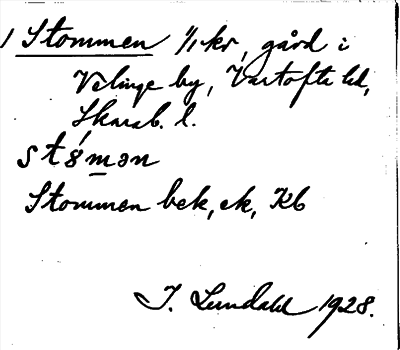 1 Stommen 1/1 kr, gård i
Velinge by, Vartofta hd,
Skarab. l.
st8́mən
Stommen bek, ek, Kb
I. Lundahl 1928.